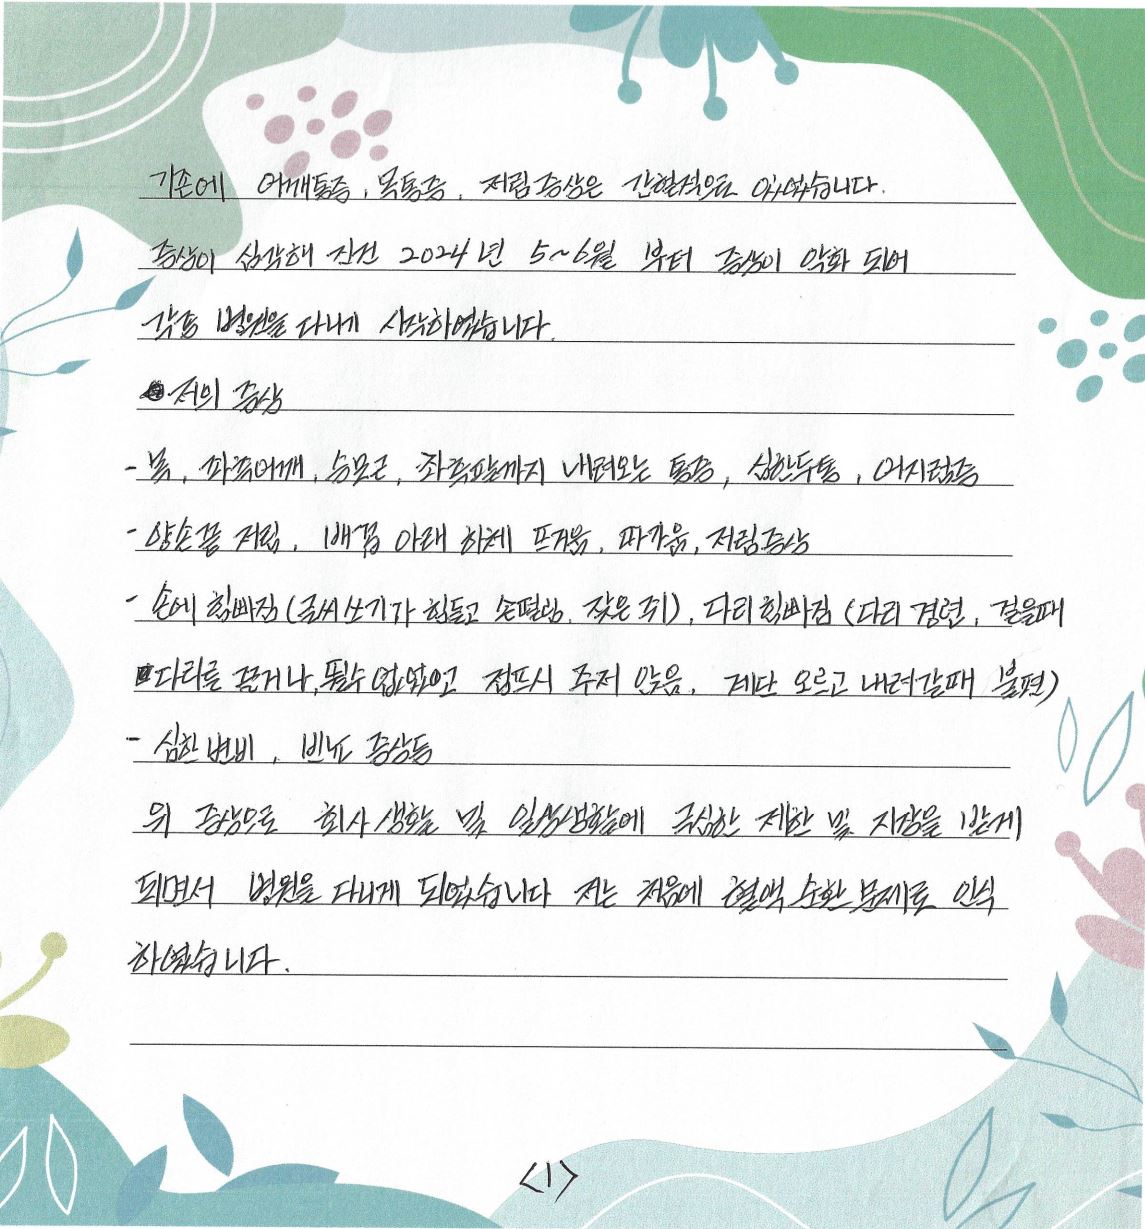 기존에 어깨통증, 목통증, 저림증상은 간헐적으로 있었습니다.
증상이 심각해 진건 2024년 5~6월 부터 증상이 악화 되어
각종 병원을 다니게 시작하였습니다.
저의 증상
- 목, 좌측어깨, 승모근, 좌측팔까지 내려오는 통증, 심한두통, 어지럼증
- 양손끝 저림, 배꼽 아래 하체 뜨거움, 따가움, 저림증상
- 손에 힘빠짐 (글씨 쓰기가 힘들고 손떨림, 잦은 쥐), 다리힘빠짐 (다리 경련, 걸을때
다리를 끌거나, 뛸수 없었고 점프시 주저 앉음, 계단 오르고 내려갈때 불편)
- 심한 변비, 빈뇨 증상등
위 증상으로 회사 생활 및 일상생활에 극심한 제한 및 지장을 받게
되면서 병원을 다니게 되었습니다 저는 처음에 혈액 순환 문제로 인식
하였습니다.
<1>